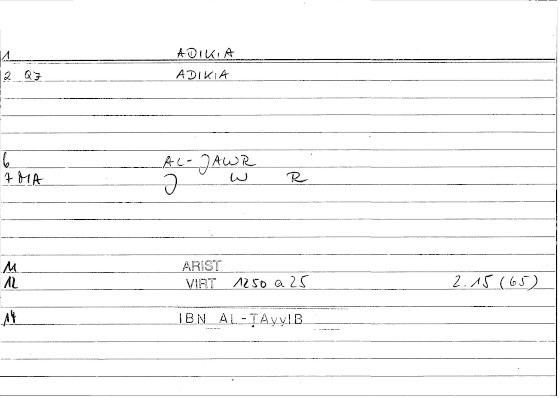 1 ADIKIA
2 Q7 ADIKIA
6 AL-JAWR
7 MA J W R
11 ARIST
12 VIRT 1250 a 25 2.15 (65)
14 IBN AL-ṬAyyIB